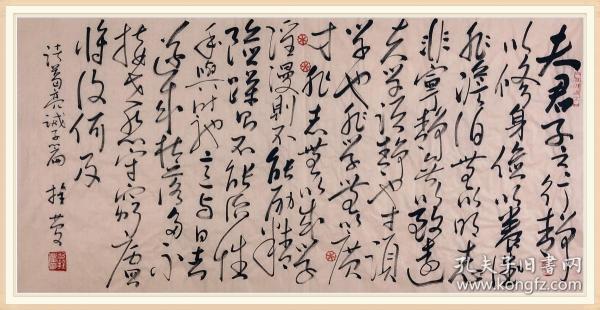 夫君子之行静
以修身俭以养德
非澹泊无以明志
非宁静无以致远
夫学须静也才须
学也非学无以广
才非志无以成学
淫漫则不能励精
险躁则不能治性
年与时驰意与日去
遂成枯落多不
接世悲守穷庐
将复何及
诸葛亮诫子篇
孔夫子旧书网
www.kongfz.com